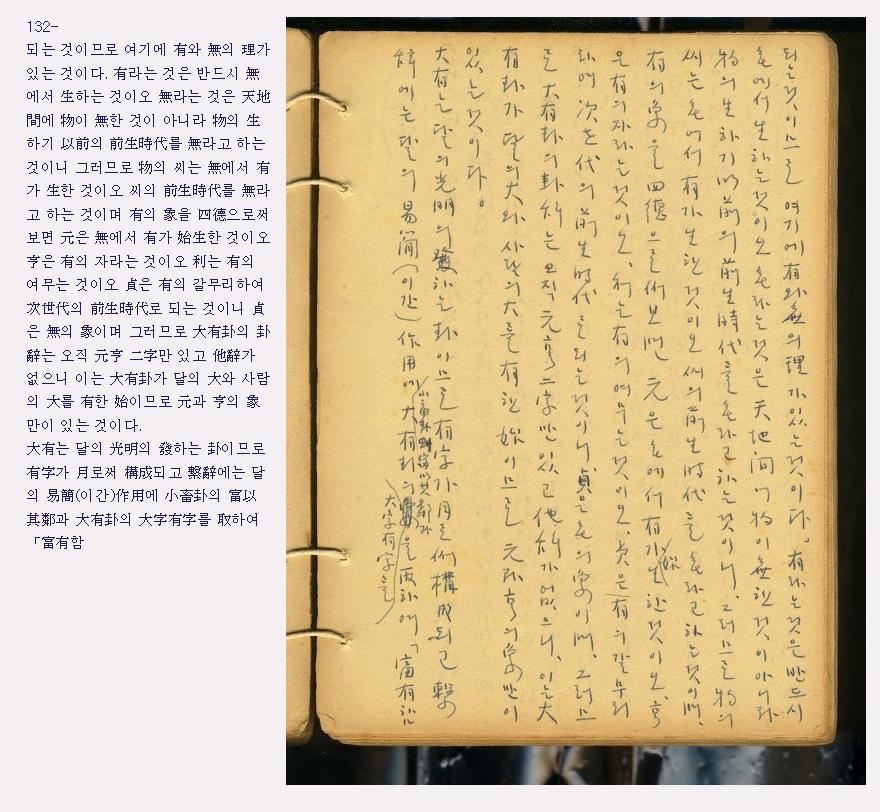 132-
되는 것이므로 여기에 有와 無의 理가
있는 것이다. 有라는 것은 반드시 無
에서 生하는 것이오 無라는 것은 天地
間에 物이 無한 것이 아니라 物의 生
하기 以前의 前生時代를 無라고 하는
것이니 그러므로 物의 씨는 無에서 有
가 生한 것이오 씨의 前生時代를 無라
고 하는 것이며 有의 象을 四德으로써
보면 元은 無에서 有가 始生한 것이오
亨은 有의 자라는 것이오 利는 有의
여무는 것이오 貞은 有의 갈무리하여
次世代의 前生時代로 되는 것이니 貞
은 無의 象이며 그러므로 大有卦의 卦
辭는 오직 元亨 二字만 있고 他辭가
없으니 이는 大有卦가 달의 大와 사람
의 大를 有한 始이므로 元과 亨의 象
만이 있는 것이다.
大有는 달의 光明의 發하는 卦이므로
有字가 月로써 構成되고 繫辭에는 달
의 易簡(이간)作用에 小畜卦의 富以
其鄰과 大有卦의 大字有字를 取하여
「富有함
되는 것이므로 여기에 有와 無의 理가 있는 것이다。有라는 것은 반드시
無에서 生하는 것이오 無라는 것은 天地間에 物이 無한 것이 아니라
物의 生하기 以前의 前生時代를 無라고 하는 것이니、그러므로 物의
씨는 無에서 有가 生한 것이오 씨의 前生時代를 無라고 하는 것이며、
有의 象을 四德으로써 보면 元은 無에서 有가 始生한 것이오、亨
은 有의 자라는 것이오、利는 有의 여무는 것이오、貞은 有의 갈무리
하여 次世代의 前生時代로 되는 것이니 貞은 無의 象이며、그러므
로 大有卦의 卦辭는 오직 元亨 二字만 있고 他辭가 없으니、이는 大
有卦가 달의 大와 사람의 大를 有한 始이므로 元과 亨의 象만이
있는 것이다。
大有는 달의 光明의 發하는 卦이므로 有字가 月로써 構成되고 繫
小畜卦의 富以其鄰과
辭에는 달의 易簡(이간)作用에 大有卦의 을 取하여「富有함
大字有字를